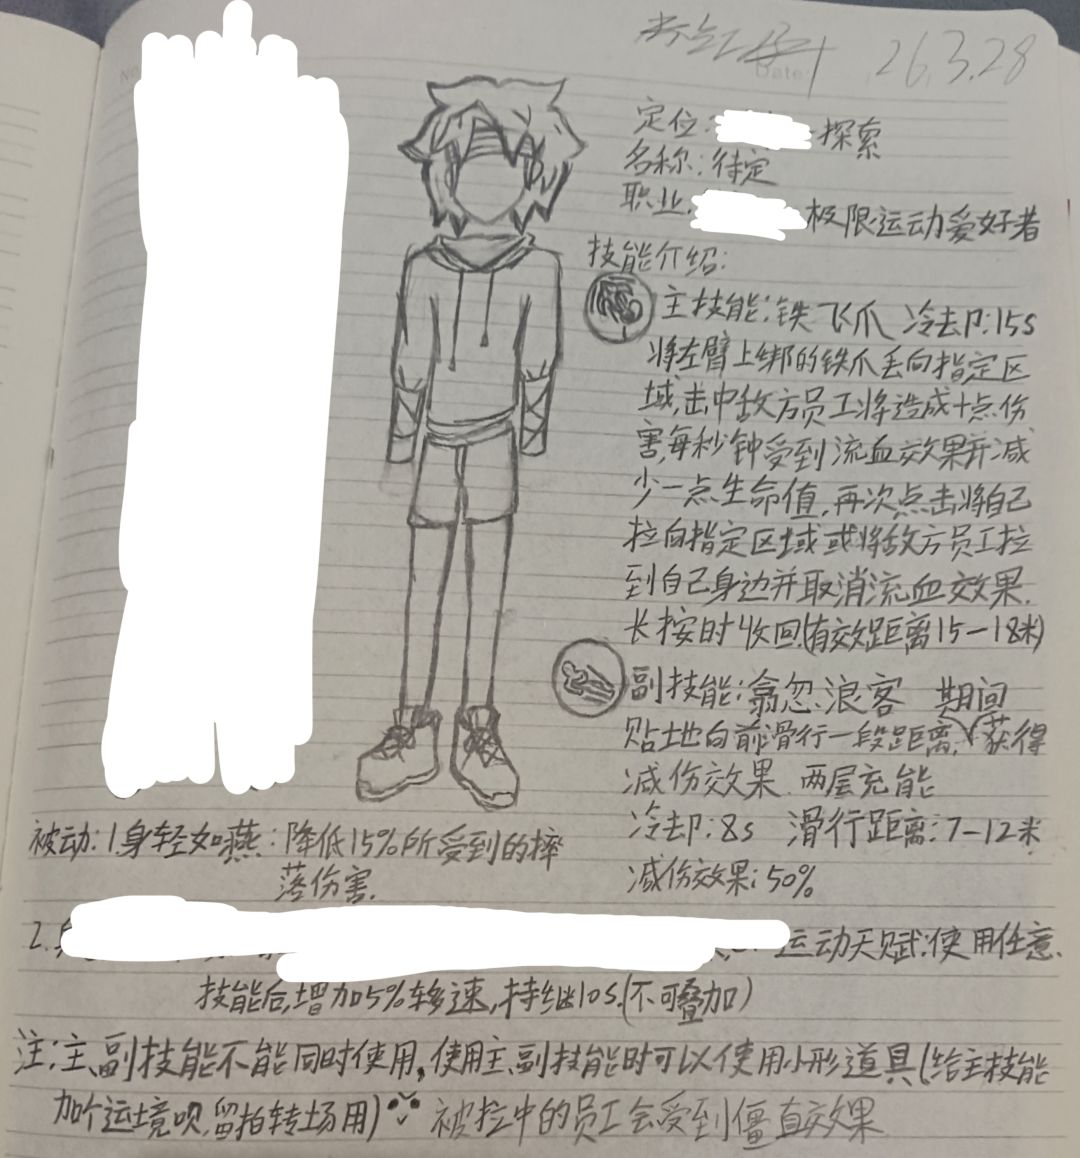 No
Date:
26.3.28
定位: 探索
名称:待定
职业. 极限运动爱好者
技能介绍:
主技能:铁飞爪 冷却:15s
将左臂上绑的铁爪丢向指定区
域,击中敌方员工将造成十点伤
害,每秒钟受到流血效果并减
少一点生命值,再次点击将自己
拉向指定区域或将敌方员工拉
到自己身边并取消流血效果.
长按时收回.(有效距离15-18米)
副技能:翕忽.浪客 期间
贴地向前滑行一段距离,获得
减伤效果.两层充能
冷却:8s 滑行距离:7-12米
减伤效果:50%
被动:1身轻如燕:降低15%所受到的摔
落伤害.
2. 运动天赋:使用任意
技能后,增加5%移速,持继10s.(不可叠加)
注:主、副技能不能同时使用,使用主、副技能时可以使用小形道具(给主技能
加个运境呗,留拍转场用) 被拉中的员工会受到僵直效果